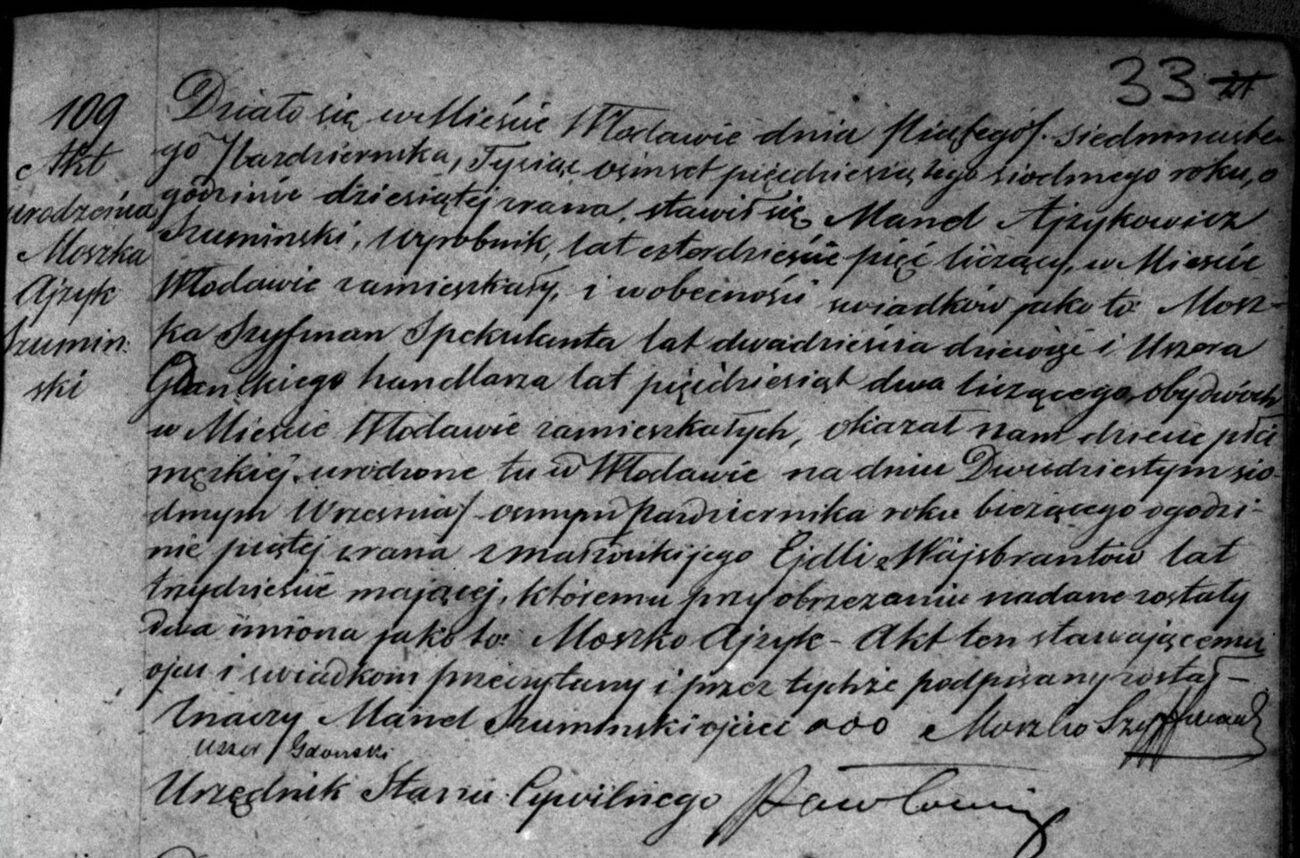 33
109
Akt
urodzenia
Moszka
Ajzyk
Szumin:
ski
Działo się w Mieście Włodawie dnia Piątego/ siedmnaste-
go Października, Tysiąc ośmset pięćdziesiątego siodmego roku, o
godzinie dziesiątej zrana, stawił się Mand Ajzykowicz
Szuminski, Wyrobnik, lat czterdzieście pięć liczący, w Mieście
Włodawie zamieszkały, i w obecności swiadków jako to: Mosz-
ka Szyfman Spekulanta lat dwadzieścia dziewięć i Uszera
Gdańskiego handlarza lat pięćdziesiąt dwa liczącego, obydwóch
w Mieście Włodawie zamieszkałych, okazał nam dziecię płci
męzkiej, urodzone tu w Włodawie na dniu Dwudziestym sio-
dmym Września/ osmym Pazdziernika roku bieżącego o godzi-
nie piątej zrana z małżonki jego Ejdli z Wajsbrantów lat
trzydzieście mającej, któremu przy obrzezaniu nadane zostały
dwa imiona jako to: Moszko Ajzyk - Akt ten stawającemu
ojcu i swiadkom przeczytany i przez tychże podpisany został -
Znaczy Mand Szuminski ojciec ooo Moszko Szyffman
Uszer Gdanski
Urzędnik Stanu Cywilnego